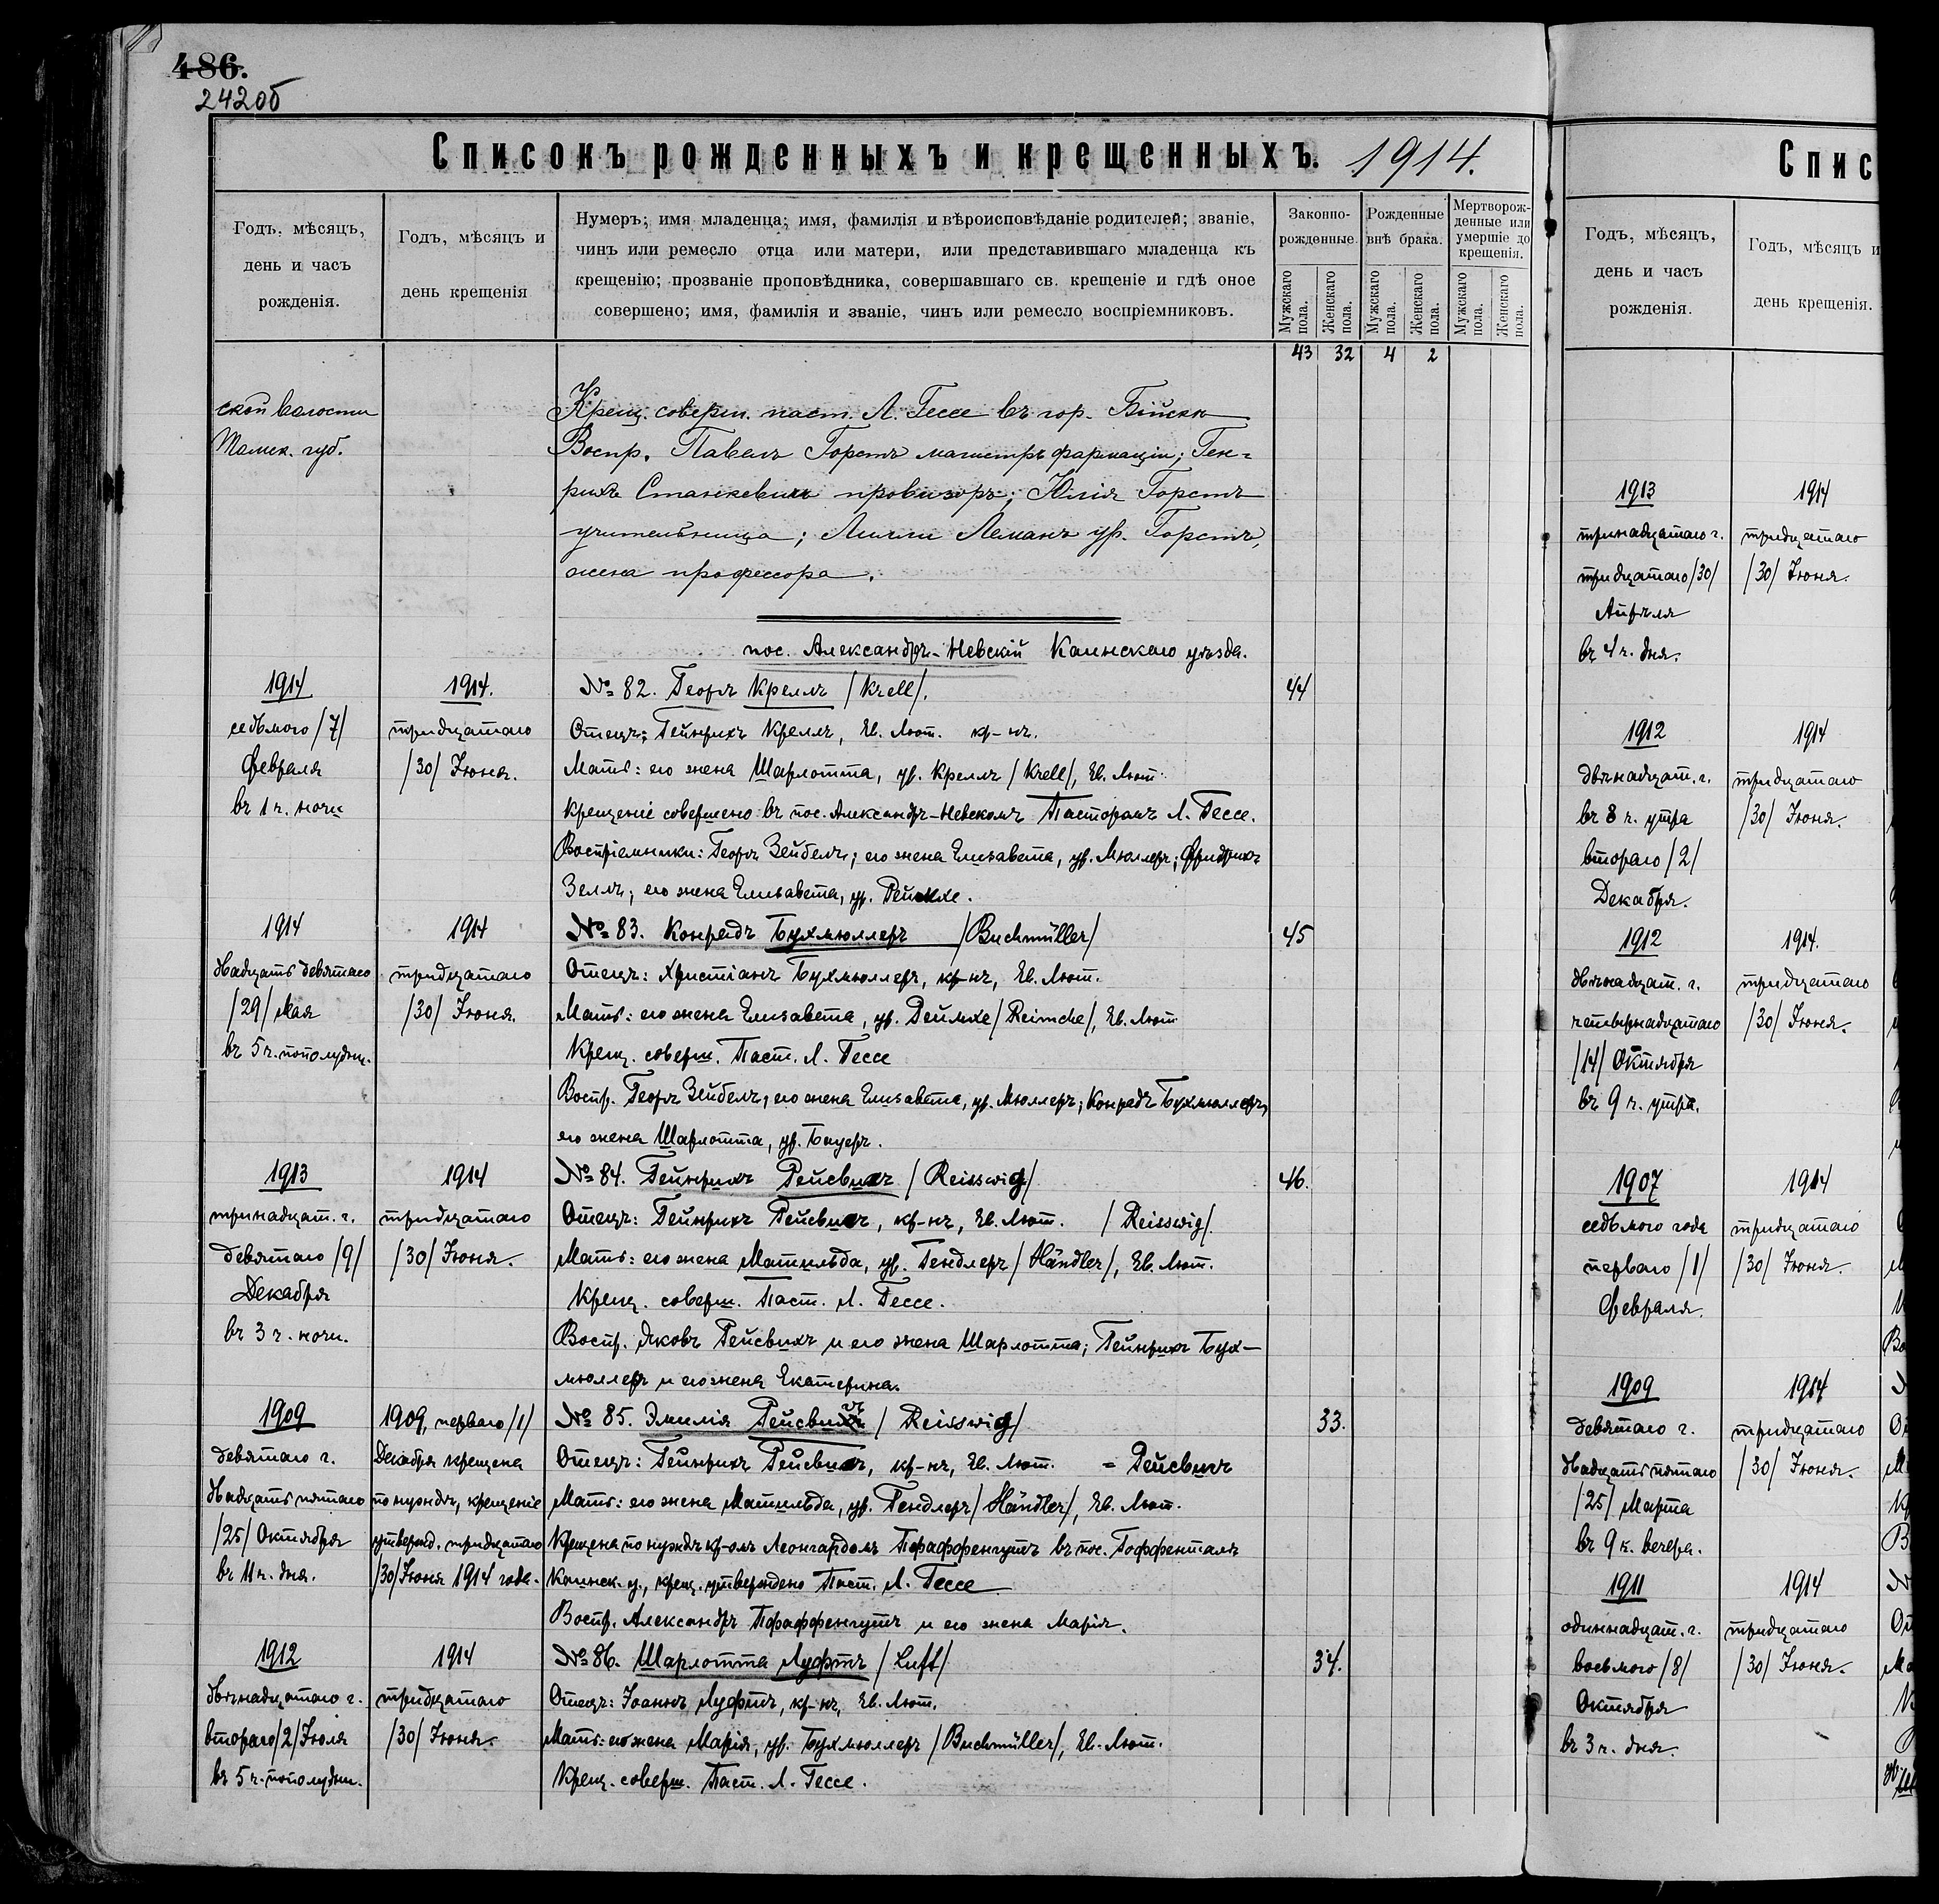 486.
242об
Списокъ рожденныхъ и крещенныхъ. 1914.
Годъ, мѣсяцъ,
день и часъ
рожденія.
Годъ, мѣсяцъ и
день крещенія
Нумеръ; имя младенца; имя, фамилія и вѣроисповѣданіе родителей; званіе,
чинъ или ремесло отца или матери, или представившаго младенца къ
крещенію; прозваніе проповѣдника, совершавшаго св. крещеніе и гдѣ оное
совершено; имя, фамилія и званіе, чинъ или ремесло воспріемниковъ.
Законно-
рожденные.
Рожденные
внѣ брака.
Мертворож-
денные или
умершіе до
крещенія.
Мужскаго пола.
Женскаго пола.
Мужскаго пола.
Женскаго пола.
Мужскаго пола.
Женскаго пола.
43 32 4 2
ской волости
Томск. губ.
Крещ. соверш. паст. Л. Гессе въ гор. Бійскѣ
Воспр. Павелъ Горстъ магистръ фармаціи; Ген-
рихъ Станкевичъ провизоръ; Юлія Горстъ
учительница; Лилли Леманъ ур. Горстъ,
жена профессора.
пос. Александръ-Невскій Каинскаго уѣзда.
1914
седьмого /7/
Февраля
въ 1 ч. ночи
1914.
тридцатаго
/30/ Іюня.
№ 82. Георгъ Креллъ /Krell/.
44
Отецъ: Гейнрихъ Креллъ, Ев. Лют. кр-нъ.
Мать: его жена Шарлотта, ур. Креллъ /Krell/, Ев. Лют.
Крещеніе совершено въ пос. Александръ-Невскомъ Пасторомъ Л. Гессе.
Воспріемники: Георгъ Зейбель; его жена Елизавета, ур. Мюллеръ; Фридрихъ
Зеллъ; его жена Елизавета, ур. Реймхе.
1914
двадцать девятаго
/29/ Мая
въ 5 ч. пополудни.
1914
тридцатаго
/30/ Іюня.
№ 83. Конрадъ Бухмюллеръ /Buchmüller/
45
Отецъ: Христіанъ Бухмюллеръ, кр-нъ, Ев. Лют.
Мать: его жена Елизавета, ур. Реймхе /Reimche/, Ев. Лют.
Крещ. соверш. Паст. Л. Гессе
Воспр. Георгъ Зейбель, его жена Елизавета, ур. Мюллеръ; Конрадъ Бухмюллеръ,
его жена Шарлотта, ур. Бауеръ.
1913
тринадцат. г.
девятаго /9/
Декабря
въ 3 ч. ночи.
1914
тридцатаго
/30/ Іюня.
№ 84. Гейнрихъ Рейсвихъ /Reisswig/
46.
Отецъ: Гейнрихъ Рейсвихъ, кр-нъ, Ев. Лют. /Reisswig/.
Мать: его жена Матильда, ур. Гендлеръ /Händler/, Ев. Лют.
Крещ. соверш. Паст. Л. Гессе.
Воспр. Яковъ Рейсвихъ и его жена Шарлотта; Гейнрихъ Бух-
мюллеръ и его жена Екатерина.
1909
девятаго г.
двадцать пятаго
/25/ Октября
въ 11 ч. дня.
1909, перваго /1/
Декабря крещена
по нуждѣ, крещеніе
утвержд. тридцатаго
/30/ Іюня 1914 года.
№ 85. Эмилія Рейсвихъ /Reisswig/
33.
Отецъ: Гейнрихъ Рейсвихъ, кр-нъ, Ев. Лют. = Рейсвихъ
Мать: его жена Матильда, ур. Гендлеръ /Händler/, Ев. Лют.
Крещена по нуждѣ кр-омъ Леонгардомъ Пфаффенгутъ въ пос. Гоффенталь
Каинск. у., крещ. утверждено Паст. Л. Гессе
Воспр. Александръ Пфаффенгутъ и его жена Марія.
1912
двѣнадцатаго г.
второго /2/ Іюля
въ 5 ч. пополудни.
1914
тридцатаго
/30/ Іюня.
№ 86. Шарлотта Луфтъ /Luft/
34.
Отецъ: Іоаннъ Луфтъ, кр-нъ, Ев. Лют.
Мать: его жена Марія, ур. Бухмюллеръ /Buchmüller/, Ев. Лют.
Крещ. соверш. Паст. Л. Гессе.
Спис
Годъ, мѣсяцъ,
день и часъ
рожденія.
Годъ, мѣсяцъ и
день крещенія.
1913
тринадцатаго г.
тридцатаго /30/
Апрѣля
въ 4 ч. дня.
1914
тридцатаго
/30/ Іюня.
1912
двѣнадцат. г.
въ 8 ч. утра
второго /2/
Декабря.
1914
тридцатаго
/30/ Іюня.
1912
двѣнадцат. г.
четырнадцатаго
/14/ Октября
въ 9 ч. утра.
1914.
тридцатаго
/30/ Іюня.
1907
седьмого года
перваго /1/
Февраля.
1914
тридцатаго
/30/ Іюня.
1909
девятаго г.
двадцать пятаго
/25/ Марта
въ 9 ч. вечера.
1914
тридцатаго
/30/ Іюня.
1911
одиннадцат. г.
восьмого /8/
Октября
въ 3 ч. дня.
1914
тридцатаго
/30/ Іюня.